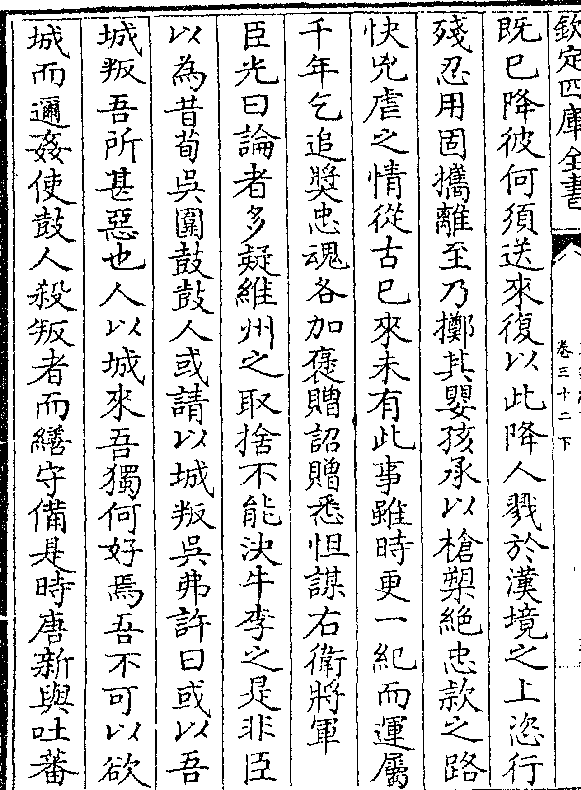 欽定四庫全書
卷三十二下
既已降彼何須送來復以此降人戮於漢境之上恣行
殘忍用固攜離至乃擲其嬰孩承以槍槊絶忠款之路
快兇虐之情從古已來未有此事雖時更一紀而運屬
千年乞追奬忠魂各加褒贈詔贈悉怛謀右衛將軍
臣光曰論者多疑維州之取捨不能決牛李之是非臣
以為昔荀吳圍鼓鼓人或請以城叛吳弗許曰或以吾
城叛吾所甚惡也人以城來吾獨何好焉吾不可以欲
城而邇姦使鼓人殺叛者而繕守備是時唐新與吐蕃